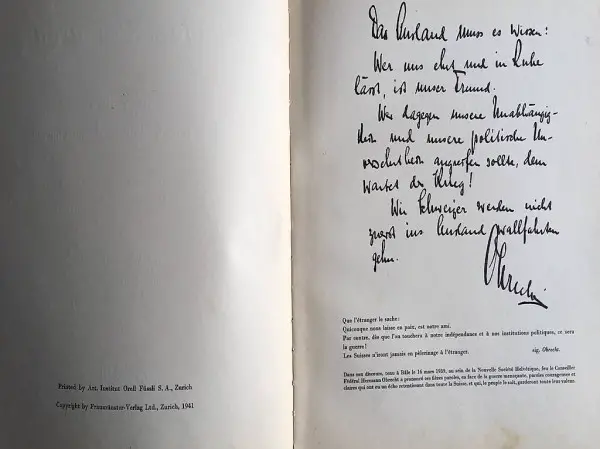 Printed by Art. Institut Orell Füssli S. A., Zurich
Copyright by Fraumünster-Verlag Ltd., Zurich, 1941
Das Ausland muss es wissen:
Wer uns ehrt und in Ruhe
lässt, ist unser Freund.
Wer dagegen unsere Unabhängig-
keit und unsere politische Un-
versehrtheit angreifen sollte, dem
wartet der Krieg!
Wir Schweizer werden nicht
zuerst ins Ausland wallfahrten
gehn.
Obrecht
Que l'étranger le sache:
Quiconque nous laisse en paix, est notre ami.
Par contre, dès que l'on touchera à notre indépendance et à nos institutions politiques, ce sera
la guerre!
Les Suisses n'iront jamais en pèlerinage à l'étranger.
sig. Obrecht.
Dans son discours, tenu à Bâle le 16 mars 1939, au sein de la Nouvelle Société Helvétique, feu le Conseiller
Fédéral Hermann Obrecht a prononcé ses fières paroles, en face de la guerre menaçante, paroles courageuses et
claires qui ont eu un écho retentissant dans toute la Suisse, et qui, le peuple le sait, garderont toute leur valeur.